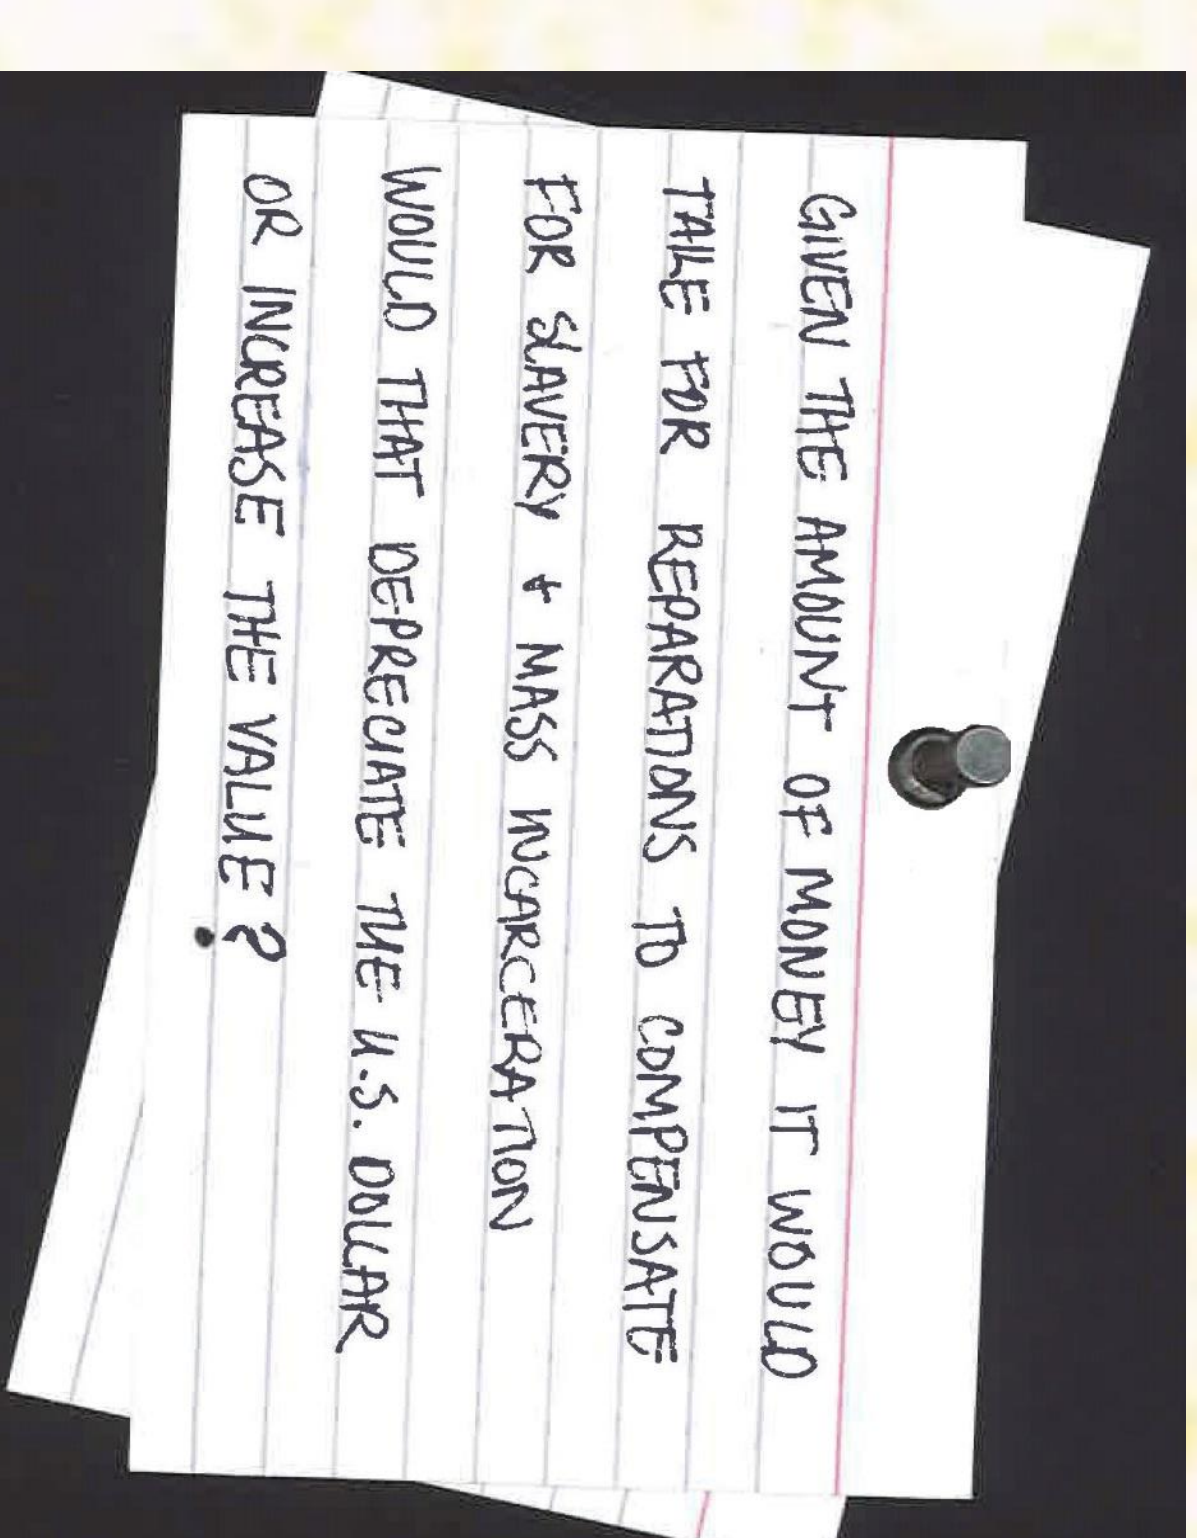 GIVEN THE AMOUNT OF MONEY IT WOULD
TAKE FOR REPARATIONS TO COMPENSATE
FOR SLAVERY + MASS INCARCERATION
WOULD THAT DEPRECIATE THE U.S. DOLLAR
OR INCREASE THE VALUE?